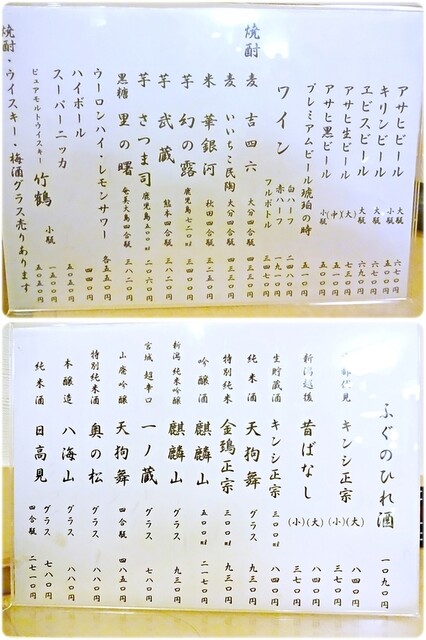 アサヒビール 大瓶 六七〇円
小瓶
キリンビール 大瓶 六七〇円
エビスビール 大瓶 六九〇円
アサヒ生ビール (大) 七三〇円
(中) 五一〇円
アサヒ黒ビール 小瓶
プレミアムビール琥珀の時
ワイン 白ハーフ 赤ハーフ
フルボトル
焼酎 麦 吉四六 大分四合瓶 四三三〇円
麦 いいちこ民陶 大分四合瓶 四三三〇円
米 華銀河 秋田四合瓶 三二五〇円
芋 幻の露 鹿児島七二〇ml 三八二〇円
芋 武蔵 熊本四合瓶 三八二〇円
芋 さつま司 鹿児島五〇〇ml 二〇六〇円
黒糖 里の曙 奄美大島四合瓶 三八二〇円
ウーロンハイ・レモンサワー 各五五〇円
ハイボール
スーパーニッカ 五〇五〇円
ピュアモルトウイスキー 竹鶴 小瓶 一五〇〇円
焼酎・ウイスキー・梅酒グラス売りあります 五五〇円
ふぐのひれ酒 一〇九〇円
伏見 キンシ正宗 (大) 八四〇円
(小) 三七〇円
新潟越後 昔ばなし (大) 八四〇円
(小) 三七〇円
生貯蔵酒 キンシ正宗 三〇〇ml 八四〇円
純米酒 天狗舞 グラス 九三〇円
特別純米 金鵄正宗 三〇〇ml 九三〇円
吟醸酒 麒麟山 五〇〇ml 二一七〇円
新潟 純米吟醸 麒麟山 グラス 九三〇円
宮城 超辛口 一ノ蔵 グラス 七八〇円
山廃吟醸 天狗舞 四合瓶 四八五〇円
特別純米酒 奥の松 グラス 八八〇円
本醸造 八海山 グラス 八八〇円
純米酒 日高見 グラス 七八〇円
四合瓶 二七一〇円